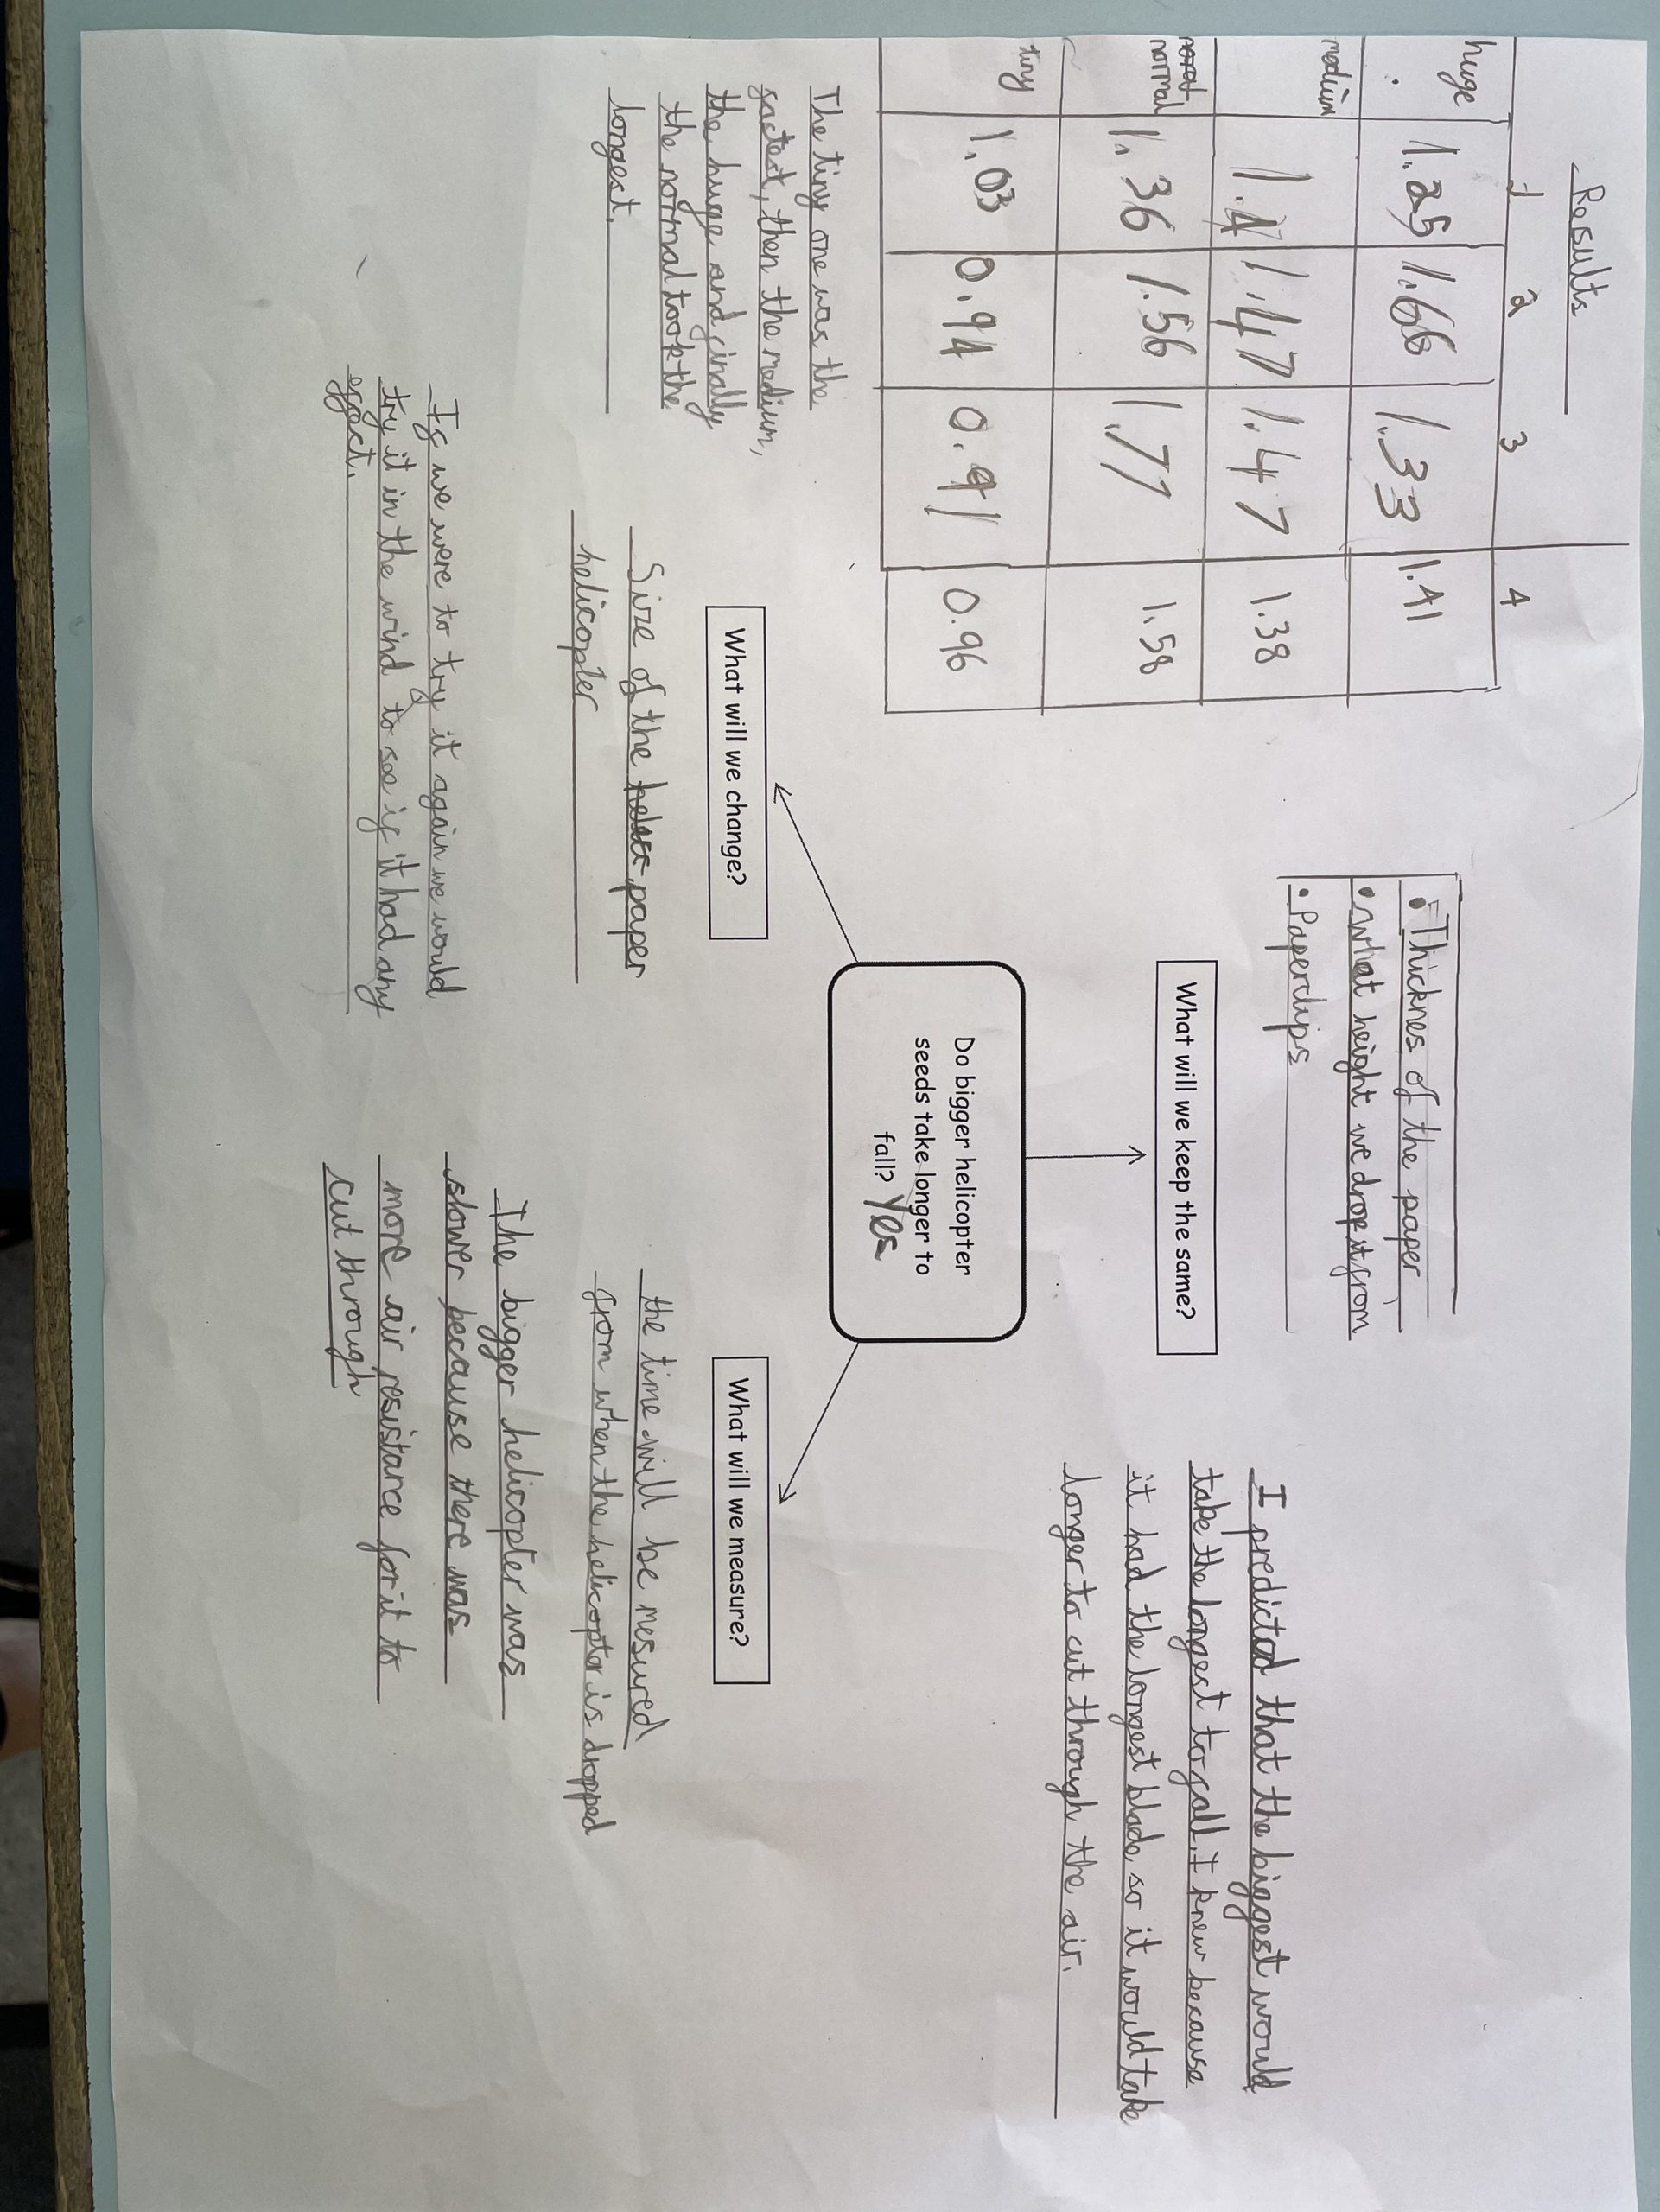 Results
1 2 3 4
huge 1.25 1.66 1.33 1.41
medium 1.4 1.47 1.47 1.38
normal 1.36 1.56 1.77 1.58
tiny 1.03 0.94 0.91 0.96
The tiny one was the
factest, then the medium,
the huge and finally
the normal took the
longest.
• Thicknes of the paper
• What height we drop it from
• Paperclips
What will we keep the same?
Do bigger helicopter
seeds take longer to
fall? Yes
I predicted that the biggest would
take the longest to fall. I knew because
it had the longest blade, so it would take
longer to cut through the air.
What will we change?
Size of the paper
helicopter
If we were to try it again we would
try it in the wind to see if it had any
effect.
What will we measure?
the time will be mesured
from when the helicopter is dropped
The bigger helicopter was
slower because there was
more air resistance for it to
cut through